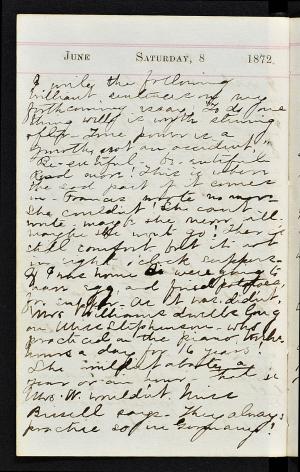 JUNE SATURDAY, 8 1872.
I write the following
brilliant sentences on my
forthcoming essay "To do one
thing well is worth striving
True power is a
growth, not an accident"
Be-eutiful - Be-eutiful
Read more! This is where
the sad part of it comes
in - Frances wrote no more
She couldn't! She can't
write
won't go! There is
cold comfort, but it's not
in eight o'clock suppers.
If I was home we were going to
have egg and fried potatoes,
for supper. As it was didn't.
Mrs. Williams dwells long
on Miss Stephenson - who
practiced on the piano twelve
hours a day for 16 years!
She wouldn't abate a
year or an hour. That is
Mrs. W. wouldn't. Miss
Bissell says - They always
practice so in Germany!